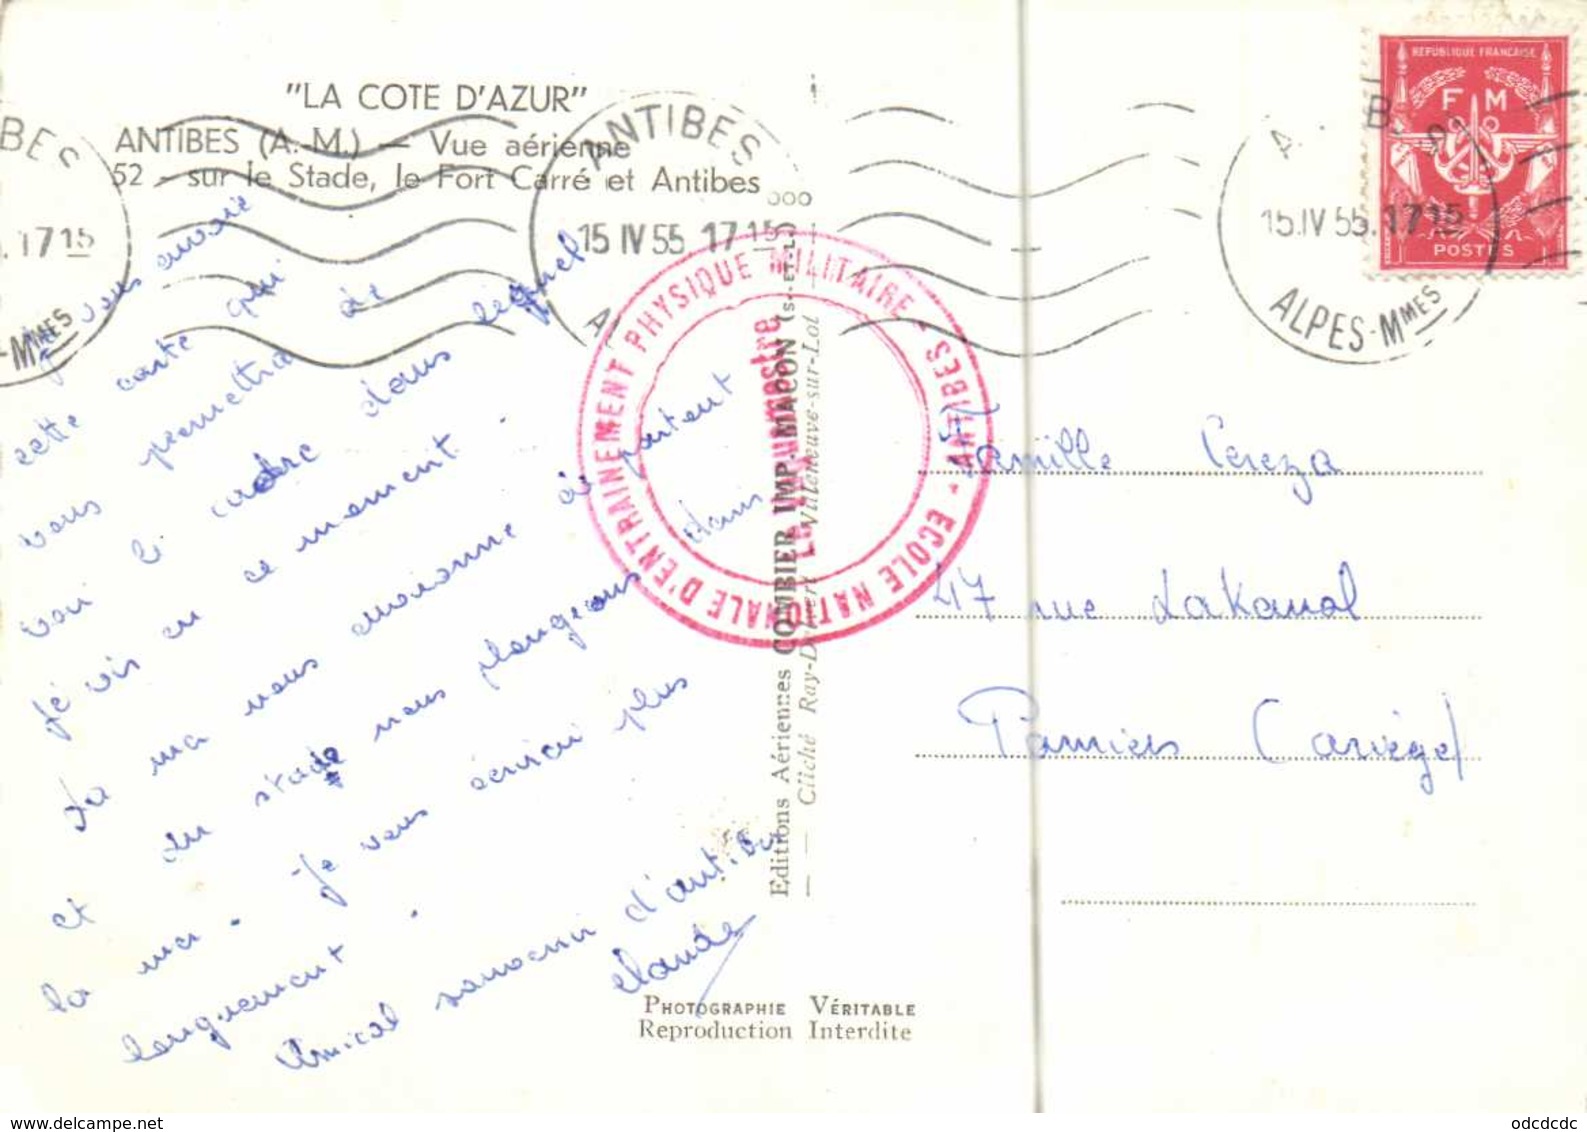 "LA COTE D'AZUR"
ANTIBES (A.-M.) — Vue aérienne
52 - sur le Stade, le Fort Carré et Antibes
ANTIBES
15 IV 55 17 15
A.
IBES
. 17 15
-MMES
A. B. 9
15.IV 55. 17 15
ALPES-MMES
REPUBLIQUE FRANCAISE
F M
POSTES
ECOLE NATIONALE D'ENTRAINEMENT PHYSIQUE MILITAIRE - ANTIBES -
Le Vaguemestre
Je vous envoie
cette carte qui
vous permettra de
voir le cadre dans lequel
je vis en ce moment.
La mer nous environne de partout
et du stade nous plongeons dans
la mer. Je vous écrirai plus
longuement.
Amical souvenir d'antibes
Claude
Famille Cereza
47 rue Lakanal
Pamiers (ariège)
Editions Aériennes COMBIER IMP. MACON (S.-ET-L.)
Cliché Ray-Delvert Villeneuve-sur-Lot
PHOTOGRAPHIE VÉRITABLE
Reproduction Interdite
odcdcdc